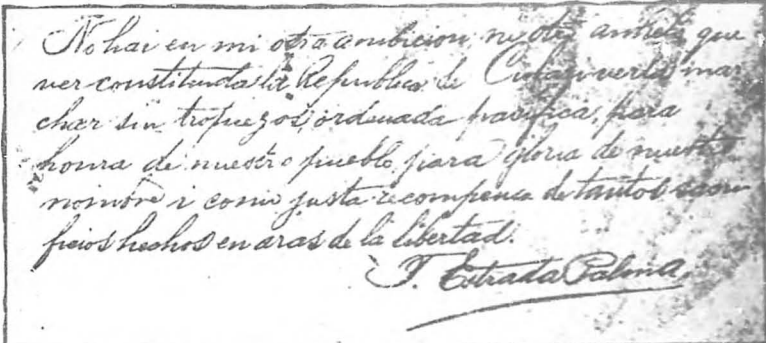 No hai en mi otra ambicion, ni otro anhelo que
ver constituida la Republica de Cuba i verla mar
char sin tropiezos, ordenada, pacifica, para
honra de nuestro pueblo, para gloria de nuestro
nombre i como justa recompensa de tantos sacri
ficios hechos en aras de la libertad.
T. Estrada Palma